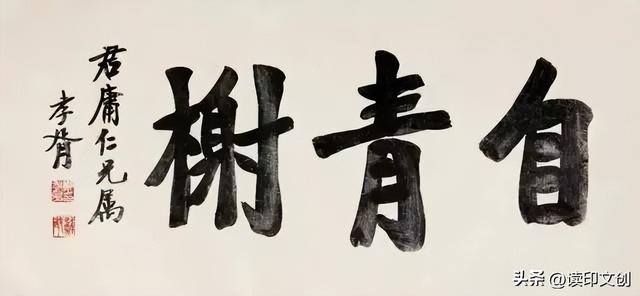 自青榭
君庸仁兄属
孝胥
头条 @读印文创